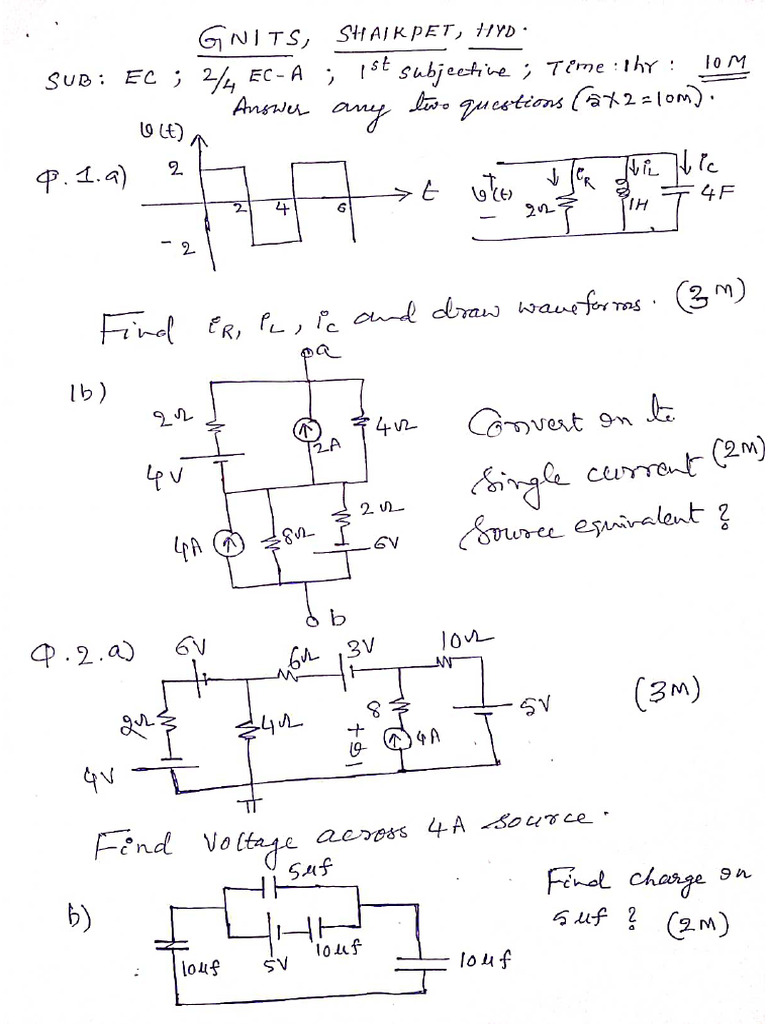 GNITS, SHAIKPET, HYD.
SUB: EC ; 2/4 EC-A ; 1st subjective ; Time : 1hr : 10M
Answer any two questions (5x2=10M).
v(t)
Q.1.a) 2 2 4 6 t
-2
+ v(t) - iR 2Ω iL 1H iC 4F
Find iR, iL, iC and draw waveforms. (3M)
a
1b) 2Ω 2A 4Ω
4V
Convert on to
single current (2M)
source equivalent ?
4A 8Ω 2Ω 6V
b
Q.2.a) 6V 6Ω 3V 10Ω
2Ω 4Ω 8 5V (3M)
+ v - 4A
4V
Find voltage across 4A source.
5uf
b) 10uf 5V 10uf 10uf
Find charge on
5uf ? (2M)